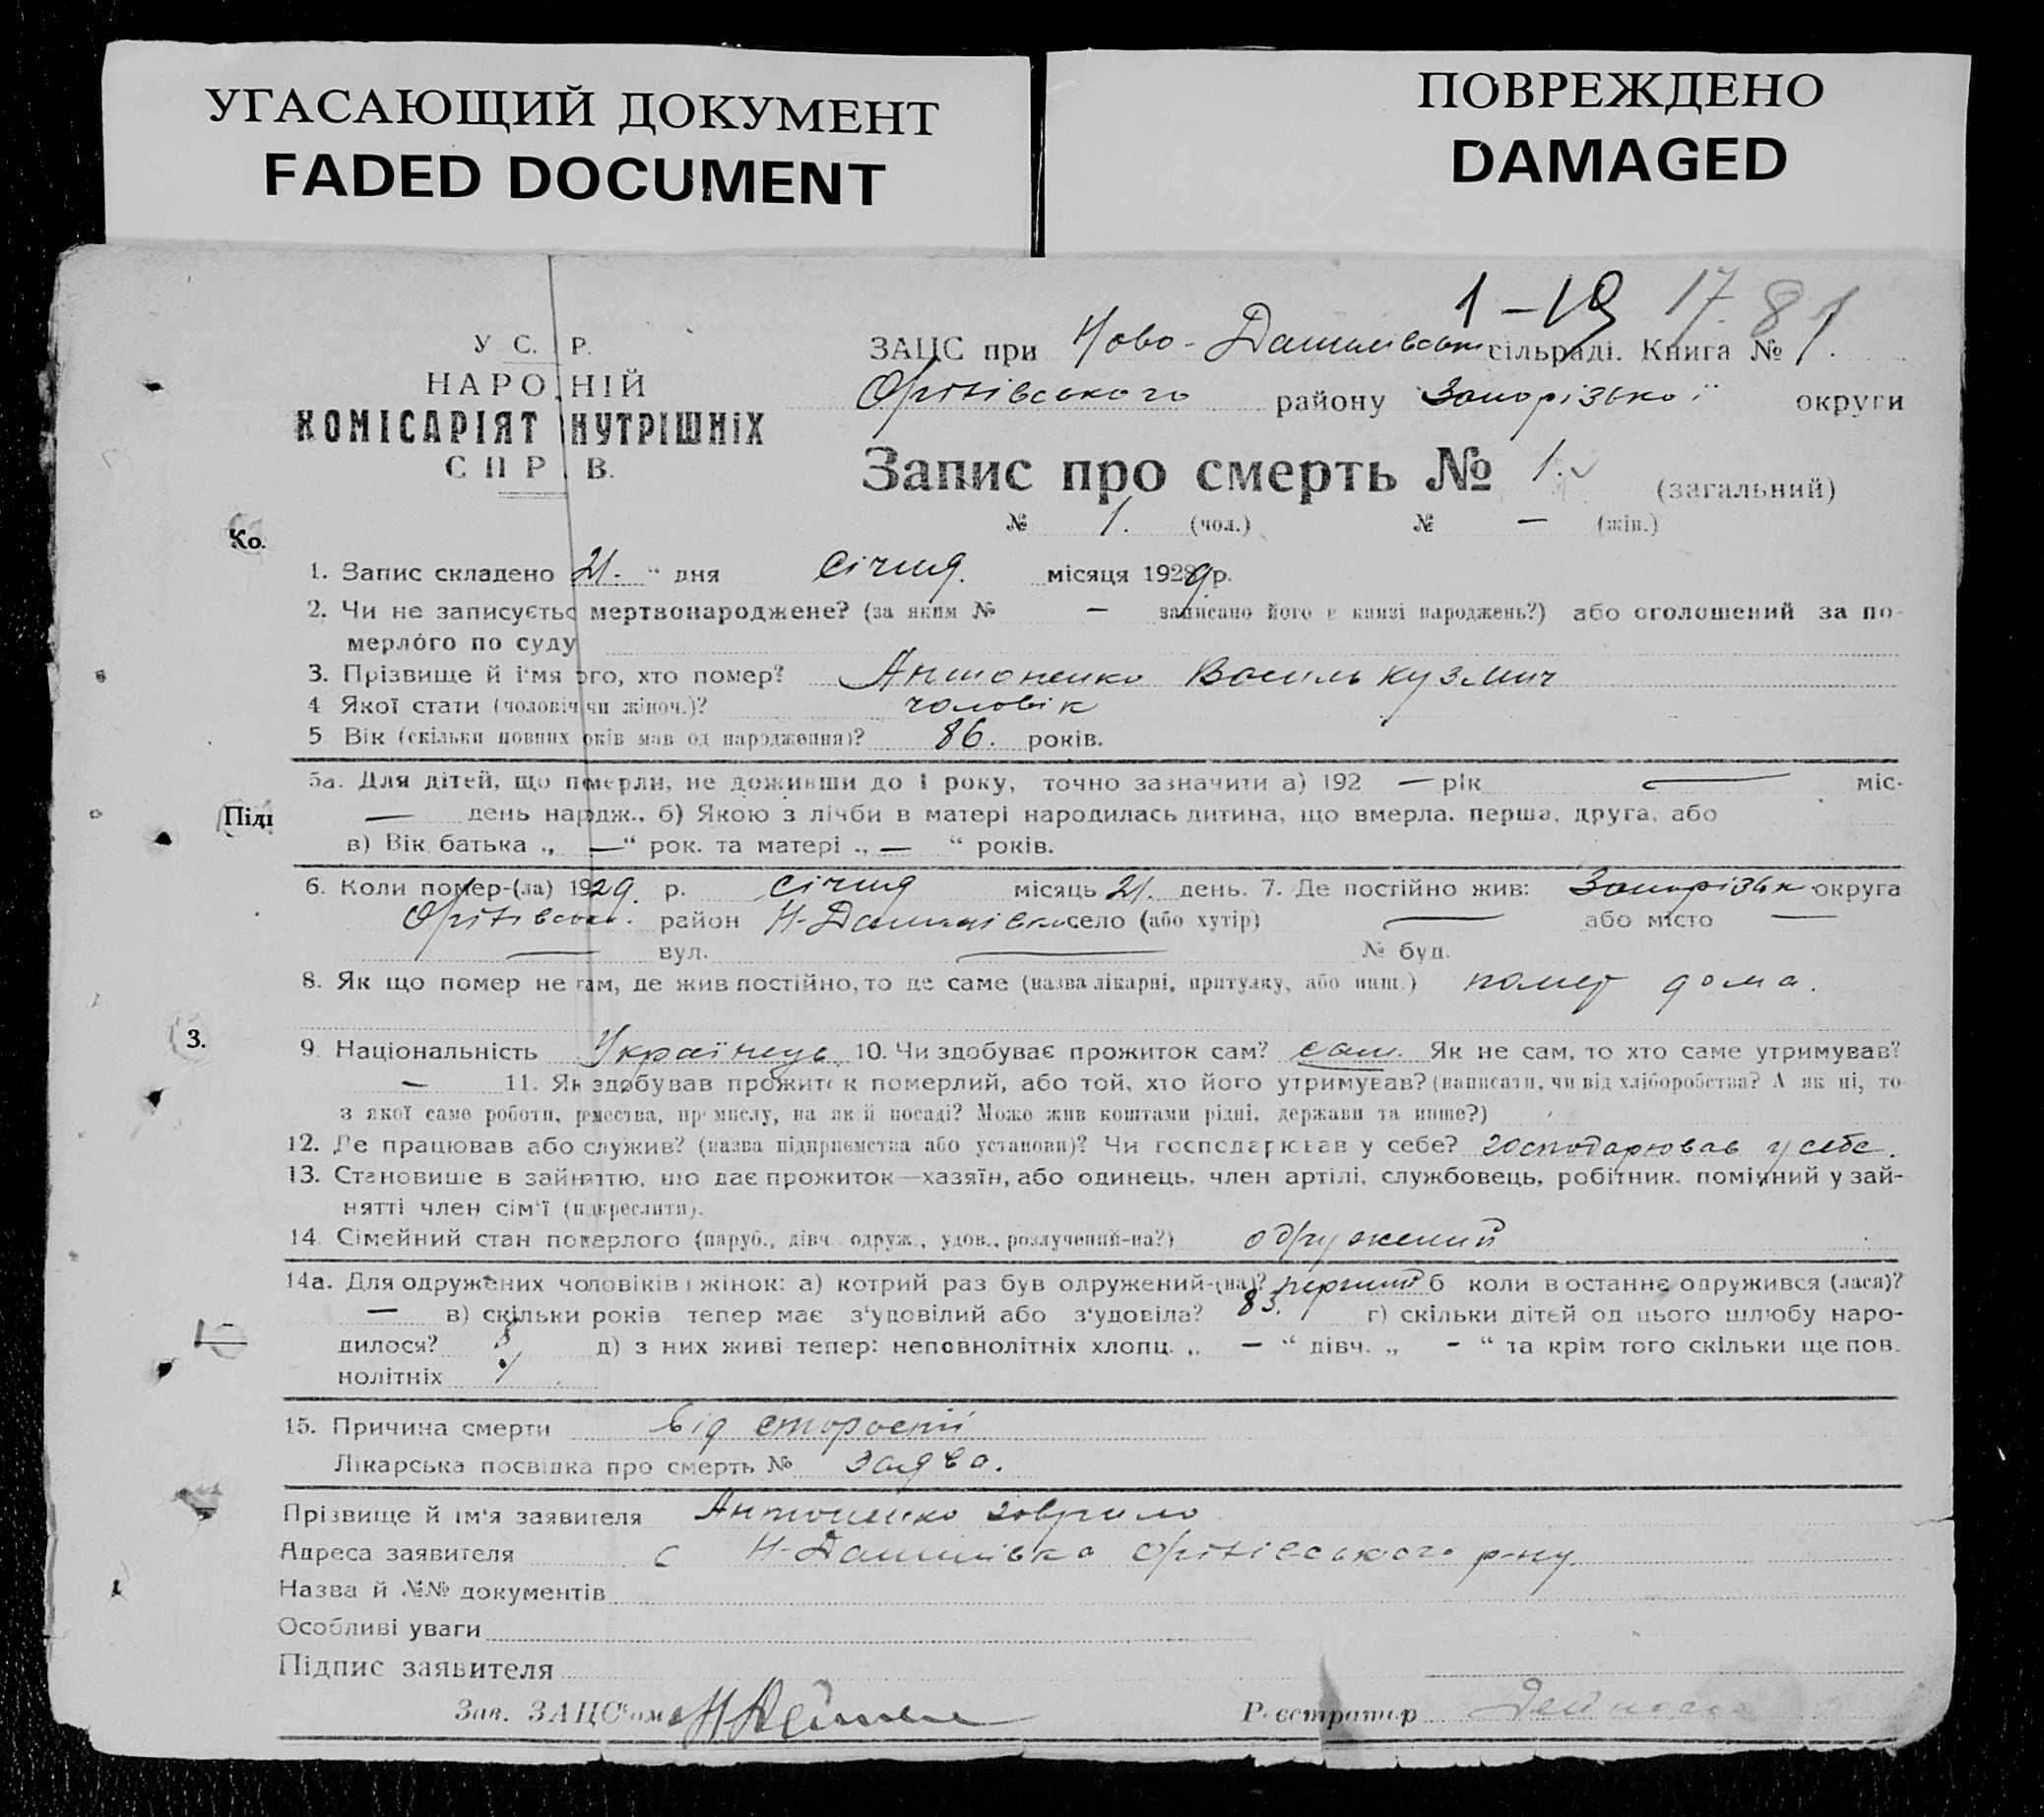 УГАСАЮЩИЙ ДОКУМЕНТ
FADED DOCUMENT
ПОВРЕЖДЕНО
DAMAGED
1 – 19 17. 81
У С. Р.
НАРО НІЙ
КОМІСАРІЯТ НУТРІШНІХ
СПР В.
ЗАЦС при Ново-Данилівськ сільраді. Книга № 1.
Оріхівського району Запорізької округи
Запис про смерть № 1. (загальний)
№ 1. (чол.) № — (жін.)
Ко.
1. Запис складено 21. " дня Січня. місяця 1929 р.
2. Чи не записуєтьс мертвонароджене? (за яким № — записано його в книзі народжень?) або оголошений за по-
мерлого по суду
3. Прізвище й ім'я ого, хто помер? Антоненко Василь Кузмич
4 Якої стати (чоловіч чи жіноч.)? чоловік
5 Вік (скільки повних оків мав од народження)? 86. років.
5а. Для дітей, що померли, не доживши до 1 року, точно зазначити а) 192 — рік — міс.
— день нардж., б) Якою з лічби в матері народилась дитина, що вмерла. перша, друга, або
Піді
в) Вік батька „ —" рок. та матері „ — " років.
6. Коли помер-(ла) 1929. р. Січня місяць 21. день. 7. Де постійно жив: Запорізьк округа
Оріхівськ. район Н-Данилівка село (або хутір) — або місто —
— вул. — № буд.
8. Як що помер не там, де жив постійно, то де саме (назва лікарні, притулку, або инш.) помер дома.
З.
9. Національність Українець 10. Чи здобуває прожиток сам? сам. Як не сам, то хто саме утримував?
— 11. Як здобував прожиток померлий, або той, хто його утримував? (написати, чи від хліборобства? А як ні, то
з якої саме роботи, ремества, промислу, на якій посаді? Може жив коштами рідні, держави та инше?)
12. Де працював або служив? (назва підприємства або установи)? Чи господарював у себе? господарював у себе.
13. Становище в зайняттю, що дає прожиток—хазяїн, або одинець, член артілі, службовець, робітник, помічний у зай-
нятті член сім'ї (підкреслити).
14. Сімейний стан померлого (паруб., дівч. одруж., удов., розлучений-на?) одружений
14а. Для одружених чоловіків і жінок: а) котрий раз був одружений-(на)? перший б коли востаннє одружився (лася)?
— в) скільки років тепер має з'удовілий або з'удовіла? 83. г) скільки дітей од цього шлюбу наро-
дилося? д) з них живі тепер: неповнолітніх хлопц. „ — " дівч. „ - " та крім того скільки ще пов.
нолітніх
15. Причина смерти від старости
Лікарська посвідка про смерть № заява.
Прізвище й ім'я заявителя Антоненко Гаврило
Адреса заявителя с Н-Данилівка Оріхівського р-ну.
Назва й №№ документів
Особливі уваги
Підпис заявителя
Зав. ЗАЦС'ом Реєстратор